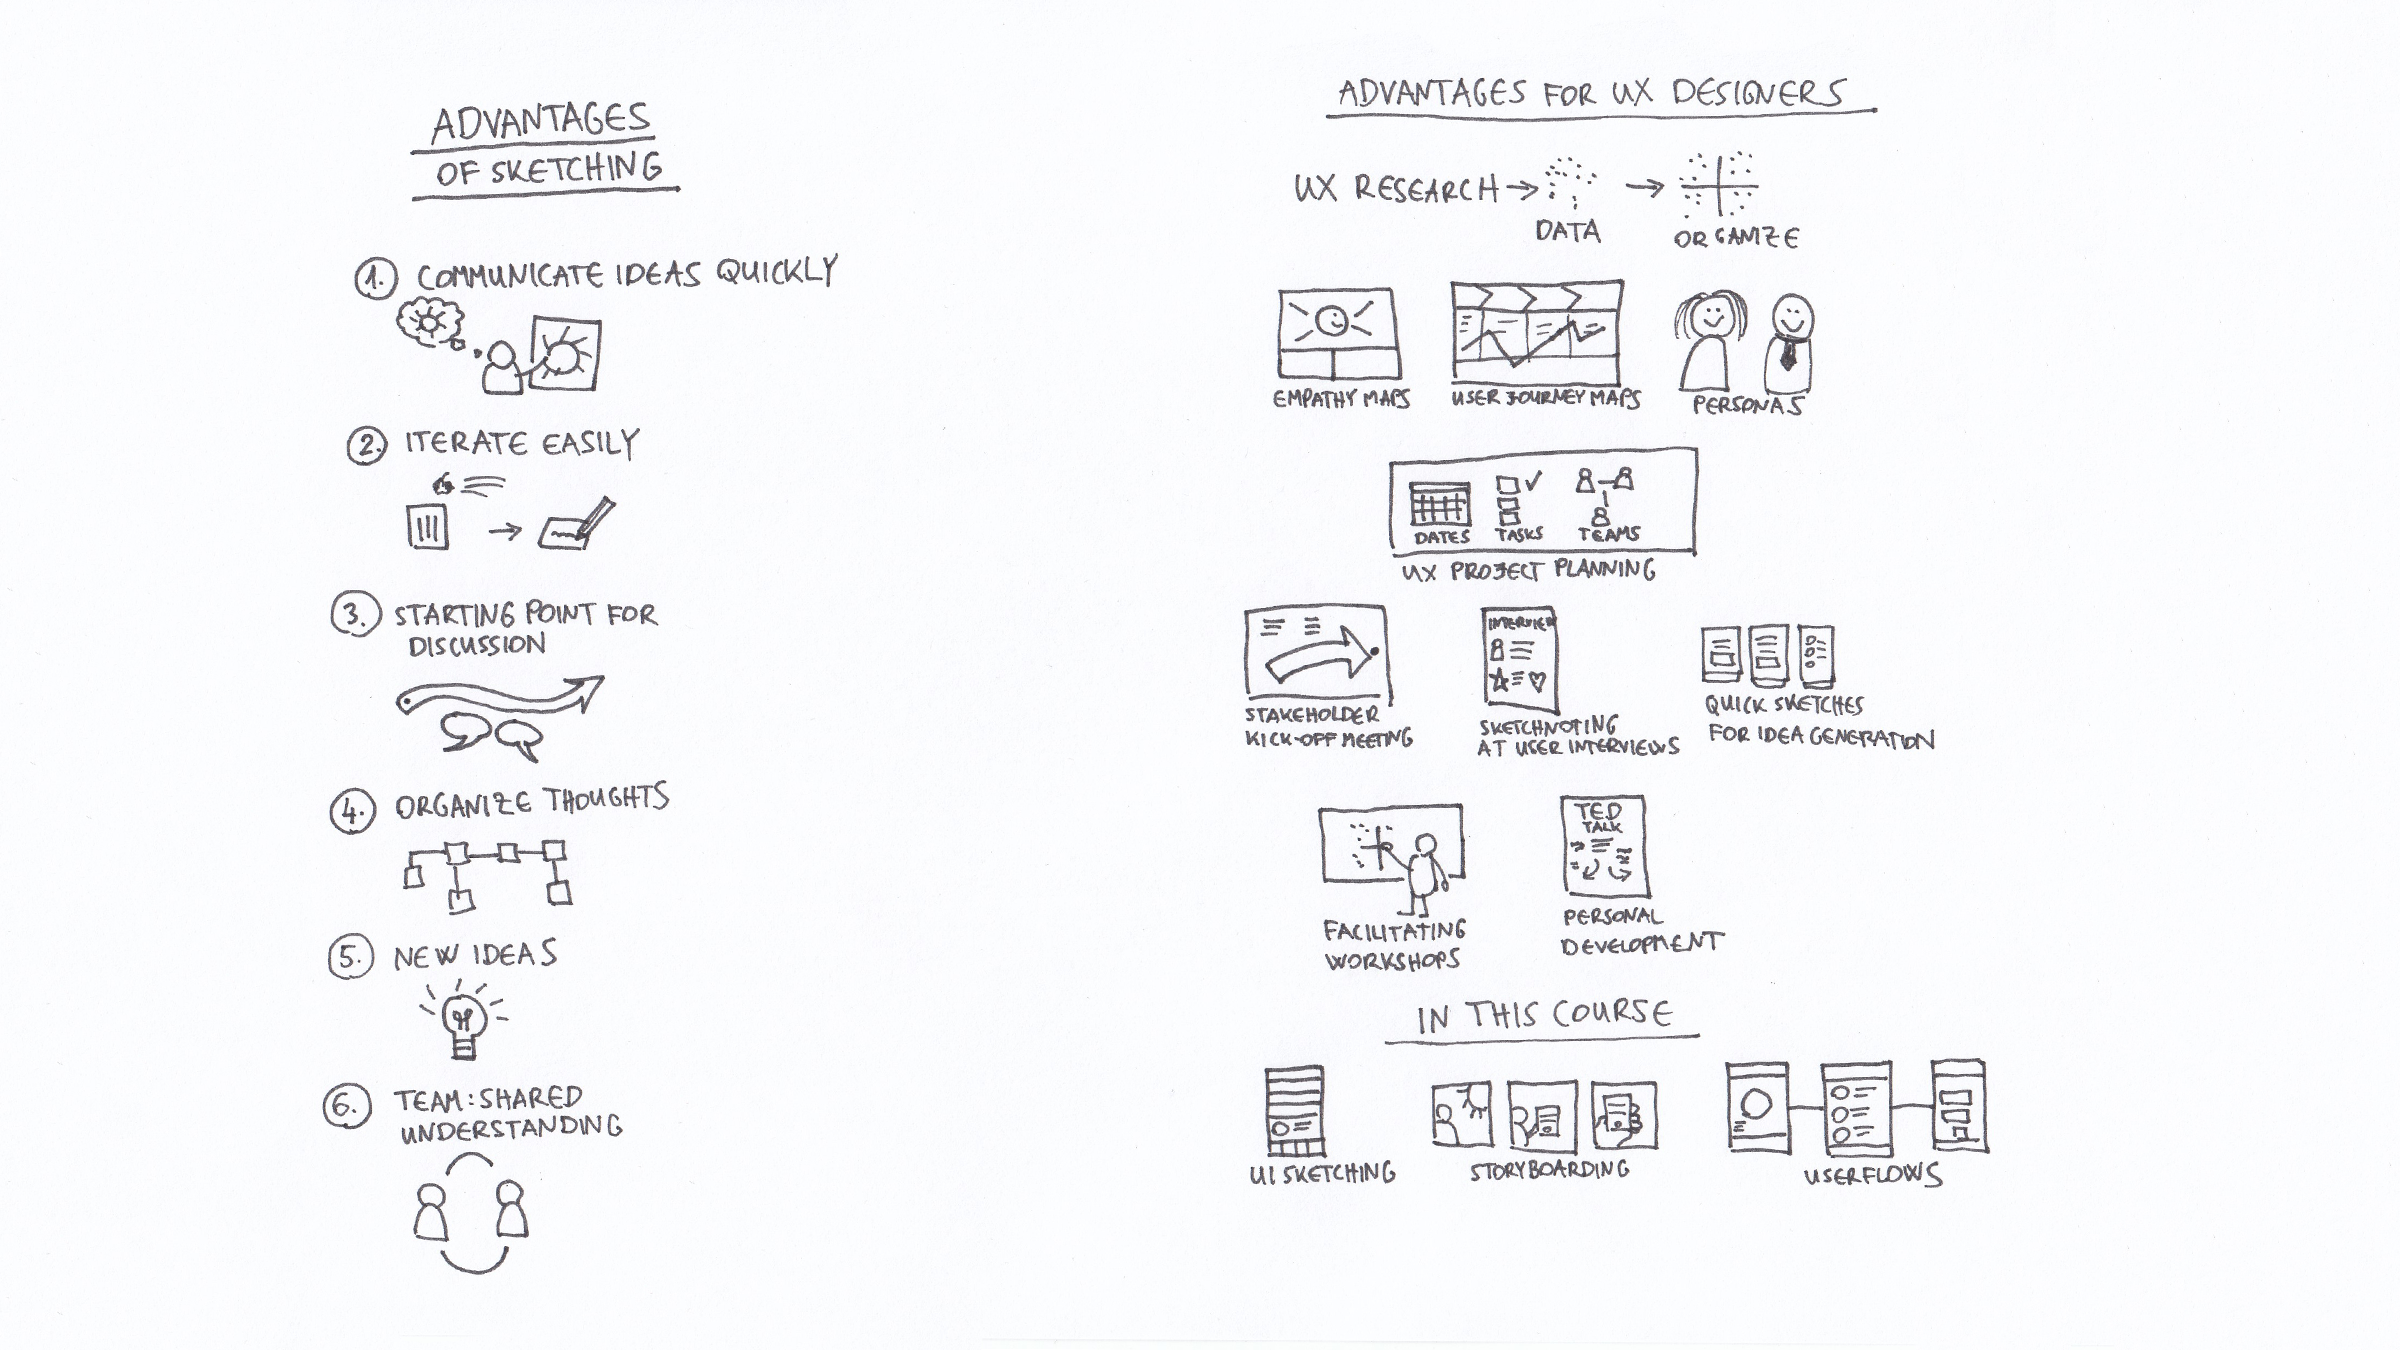 ADVANTAGES
OF SKETCHING
1. COMMUNICATE IDEAS QUICKLY
2. ITERATE EASILY
3. STARTING POINT FOR
DISCUSSION
4. ORGANIZE THOUGHTS
5. NEW IDEAS
6. TEAM: SHARED
UNDERSTANDING
ADVANTAGES FOR UX DESIGNERS
UX RESEARCH → DATA → ORGANIZE
EMPATHY MAPS
USER JOURNEY MAPS
PERSONAS
DATES
TASKS
TEAMS
UX PROJECT PLANNING
STAKEHOLDER
KICK-OFF MEETING
INTERVIEW
SKETCHNOTING
AT USER INTERVIEWS
QUICK SKETCHES
FOR IDEA GENERATION
FACILITATING
WORKSHOPS
TED
TALK
PERSONAL
DEVELOPMENT
IN THIS COURSE
UI SKETCHING
STORYBOARDING
USERFLOWS